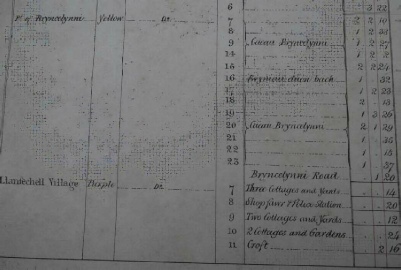 6 3 22
P. of Bryncelynni Yellow Do. 7 2 2 10
8 1 2 33
9 Cacan Bryncelynni 1 2 27
14 1 2
15 2 2 24
16 bach 1 32
17 1 2 23
18 2 13
19 1 3 26
20 Cacan Bryncelynni 2 1 29
21 1 35
22 1 15
23 1 37
Bryncelynni Road 1 20
Llanfechell Village Purple Do. 7 Three Cottages and Yards 14
8 Shop, House & Police Station 20
9 Two Cottages and Yards 12
10 2 Cottages and Gardens 24
11 Croft 2 16